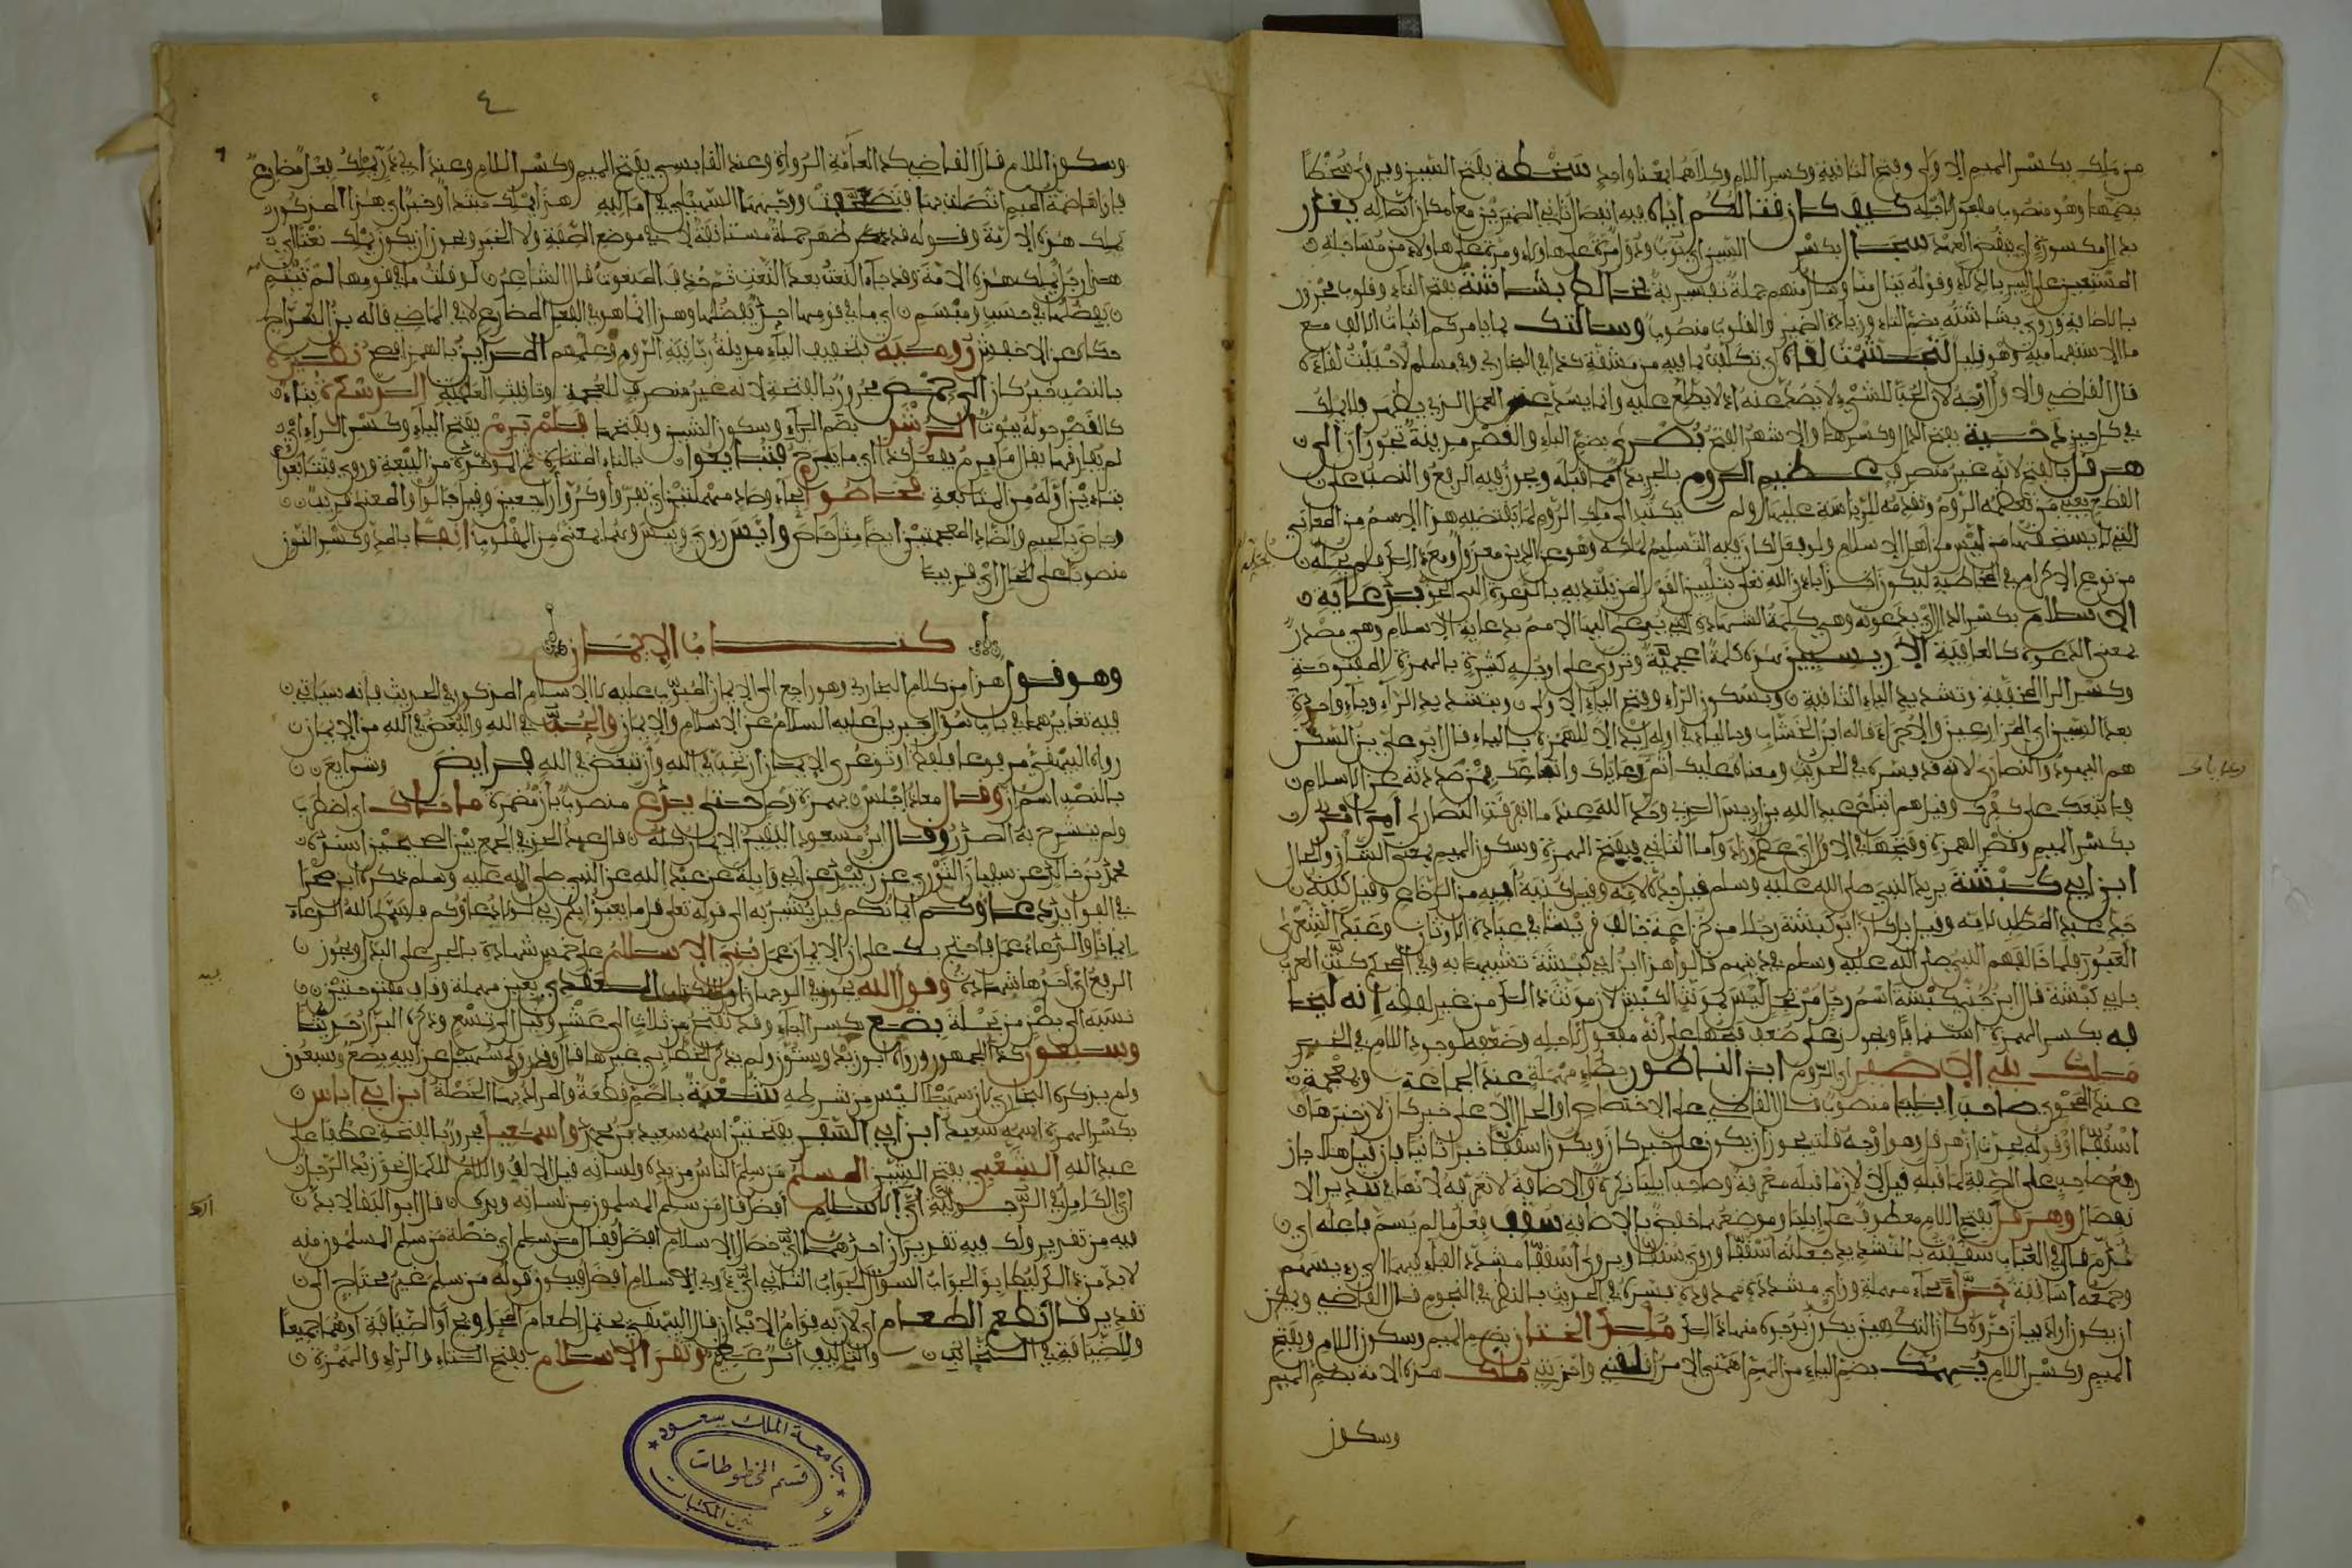 من ملك بكسر الميم الاولى وفتح الثانية وكسر اللام وكلاهما بمعنا واحد سخطة بفتح السين ويروى سخطا
بضمها وهو منصوب مفعول لاجله كيف كان قتالكم اياه فيه انفصال ثاني الضميرين مع امكان اتصاله يغدر
بدال مكسورة اي ينقض العهد سجالا بكسر السين اي نوب ودول مرة على هاولاء ومرة على هاولاء من مساجلة
المستقيين على البير بالدلاء وقوله ينال منا وننال منهم جملة تفسيرية يخالط بشاشته بفتح التاء والقلوب مجرور
بالاضافة وروي بشاشته بضم التاء وزيادة الضمير والقلوب منصوب وسالتك بما يامركم اثبات الالف مع
ما الاستفهامية وهو قليل لتجشمت لقاه اي تكلفت ما فيه من مشقة كذا في البخاري وفي مسلم لاحببت لقاءه
قال القاضي والاول اوجه لان الحب للشيء لا يصد عنه اذ لا يطلع عليه وانما يصد عن العمل الذي يظهر فلا يملك
في كل حين دحية بفتح الدال وكسرها والاشهر الفتح بصرى بضم الباء والقصر مدينة بحوران الى
هرقل بالفتح لانه غير منصرف عظيم الروم بالجر بدل مما قبله ويجوز فيه الرفع والنصب على
القطع يعني من تعظمه الروم وتقدمه للرئاسة عليها ولم يكتب الى ملك الروم لما يقتضيه هذا الاسم من المعاني
التي لا يستحقها من ليس من اهل الاسلام ولو فعل لكان فيه التسليم لملكه وهو عن الدين معزول ومع ذلك فلم يخله
من نوع الاكرام في المخاطبة ليكون اخذا باذن الله تعلى بتليين القول لمن يبتديه بالدعوة الى الحق بدعاية
الاسلام بكسر الدال اي بدعوته وهي كلمة الشهادة التي يدعى اليها الامم بدعاية الاسلام وهي مصدر
بمعنى الدعوة كالعافية الاريسيين هذه كلمة اعجمية وتروى على اوجه كثيرة بالهمزة المفتوحة
وكسر الراء المخففة وتشديد الياء الثانية وبسكون الراء وفتح الياء الاولى وبتشديد الراء وياء واحدة
بعد السين اي المزارعين والاجراء قاله ابن الخشاب وبالياء في اوله بدل الهمزة بالياء قال ابو علي بن السكن
هم اليهود والنصارى لانه قد فسره في الحديث ومعناه عليك اثم رعاياك واتباعك ممن صددته عن الاسلام
فاتبعك على كفرك وقيل هم اتباع عبد الله بن اريس الذي وحد الله عند ما تفرقت النصارى امر امر
بكسر الميم وقصر الهمزة وفتحها في الاول اي عظم وزاد واما الثاني فبفتح الهمزة وسكون الميم بمعنى الشان والحال
ابن ابي كبشة يريد النبي صلى الله عليه وسلم قيل جده لامه وقيل كنية ابيه من الرضاع وقيل كنية
جد عبد المطلب لامه وقيل بل كان ابو كبشة رجلا من خزاعة خالف قريشا في عبادة الاوثان وعبد الشعرى
العبور فلما خالفهم النبي صلى الله عليه وسلم في دينهم قالوا هذا ابن ابي كبشة تشبيها به
بابي كبشة قال ابن جني كبشة اسم مرتجل ليس بمونث الكبش لان مونث ذلك من غير لفظه انه ليخا
فه بكسر الهمزة استينافا ويجوز على ضعف فتحها على انه مفعول لاجله وضعف لوجود اللام في الخبر
ملك بني الاصفر اي الروم ابن الناطور بطاء مهملة عند الجماعة ومعجمة
عند الحموي صاحب ايليا منصوب قال القاضي على الاختصاص او الحال لا على خبر كان لان خبرها
اسقفا او قوله يحدث ان هرقل وهو اوجه قلت يجوز ان يكون على خبر كان ويكون اسقفا خبرا ثانيا فان قيل هلا جاز
رفع صاحب على الصفة لما قبله قيل لا لان ما قبله معرفة وصاحب ايليا نكرة والاضافة لا تعرفه لانها في تقدير الا
نفصال وهرقل بفتح اللام معطوف على ايليا وموضعها خفض بالاضافة سقف فعل ما لم يسم فاعله اي
قدم قال في العباب سقفته بالتشديد جعلته اسقفا وروي سقفا ويروى اسقفا مشدد الفاء فيهما اي رءيسهم
وجمعه اساقفة حزاء بحاء مهملة وزاي مشددة ممدودة فسره في الحديث بالنظر في النجوم قال القاضي ويمكن
ان يكون اراد بيان حزوه كان التكهين يكون بوجوه منها ذلك ملك الختان بضم الميم وسكون اللام وبفتح
الميم وكسر اللام يهمنك بضم الياء من الهم اهمني الامر اقلقني واحزنني ملك هذه الامة بضم الميم
وسكون
وسكون اللام قال القاضي كذا لعامة الرواة وعند القابسي بفتح الميم وكسر اللام وعند ابي ذر يملك فعل مضارع
يملك هذه الامة وقوله قد ظهر جملة مستانفة لا في موضع الصفة ولا الخبر ويجوز ان يكون يملك نعتا اي
هذا رجل يملك هذه الامة وقد جاء النعت بعد النعت ثم حذف المنعوت قال الشاعر لو قلت ما في قومها لم تيثم
يفضلها في حسب ومبسم اي ما في قومها احد يفضلها وهذا انما هو في الفعل المضارع لا في الماضي قاله بن السراج
حكاه عن الاخفش رومية بتخفيف الياء مدينة رئاسة الروم وعلمهم نظيره
بالنصب خبر كان الى حمص مجرور بالفتحة لانه غير منصرف للعجمة والتانيث والعلمية الدسكرة بناء
كالقصر حوله بيوت الرشد بضم الراء وسكون الشين وبفتحها فلم يرم بفتح الياء وكسر الراء اي
لم يفارقها يقال ما يريم يفعل كذا اي ما يبرح فتبايعوا بالتاء المثناة ثم الموحدة من البيعة وروي فنتابع
بتاءين اوله من المتابعة فحاصوا بحاء وصاد مهملتين اي نفروا وكروا راجعين وقيل جالوا والمعنى قريب
وجاض بالجيم والضاد المعجمتين ايضا مثل حاص وايس روي ويئس وهما بمعنى من المقلوب انفا بالمد وكسر النون
منصوب على الحال اي قريبا
كتاب الايمان
وهو قول هذا من كلام البخاري وهو راجع الى الايمان المبوب عليه لا الاسلام المذكور في الحديث فانه سياتي
فيه تغايرهما في باب سؤال جبريل عليه السلام عن الاسلام والايمان والحب في الله والبغض في الله من الايمان
رواه البيهقي مرفوعا بلفظ اوثق عرى الايمان ان تحب في الله وان تبغض في الله فرايض وشرايع
بالنصب اسم ان وقال معاذ اجلس بهمزة وصل حتى يدع منصوب بان مضمرة ما حاك اي اضطرب
ولم ينشرح به الصدر وقال ابن مسعود اليقين الايمان كله قال عبد الحق في الجمع بين الصحيحين اسنده
محمد بن خالد عن سفيان الثوري عن زبيد عن ابي وايلة عن عبد الله عن النبي صلى الله عليه وسلم
دعاوكم ايمانكم قيل يشير به الى قوله تعلى قل ما يعبؤا بكم ربي لولا دعاؤكم فسمى الله الدعاء
ايمانا والدعاء عمل فاحتج به على ان الايمان عمل بني الاسلام على خمس شهادة بالجر على البدل ويجوز
الرفع اي احدها شهادة وقول الله يجوز فيه الوجهان العقدي بعين مهملة وقاف مفتوحتين
نسبة الى بطن من بجيلة بضع بكسر الباء وقد تفتح من ثلاث الى عشر وقيل الى تسع وذكره البزار حديثا
وسبعون كذا للجمهور ورواه ابو زيد وستون ولم يذكر الخطابي غيرها قال وقد روى سهيل عن ابيه بضع وسبعون
ولم يذكره البخاري لان سهيلا ليس من شرطه شعبة بالضم قطعة والمراد بها الخصلة ابن ابي اياس
بكسر الهمزة اسمه سعيد ابن ابي السفر بفتحتين اسمه سعيد بن يحمد واسمعيل مجرور بالفتحة عطفا على
عبد الله الشعبي بفتح الشين المسلم من سلم الناس من يده ولسانه قيل الالف واللام للكمال نحو زيد الرجل
اي الكامل في الرجولية اي الاسلام افضل قال من سلم المسلمون من لسانه ويده قال ابو البقا لابد
فيه من تقدير ولك فيه تقديران احدهما اي خصال الاسلام افضل فقال من سلم اي خصلة من سلم المسلمون منه
لابد من ذلك ليطابق الجواب السؤال الثاني اي ذوي الاسلام افضل فيكون قوله من سلم غير محتاج الى
تقدير قال تطعم الطعام اي لان به قوام الابدان قال البيهقي يحتمل اطعام المحاويج او الضيافة او هما جميعا
وللضيافة في التحابب والتاليف اثر عظيم وتقرا السلام بفتح التاء والراء والهمزة
جامعة الملك سعود
قسم المخطوطات
شئون المكتبات